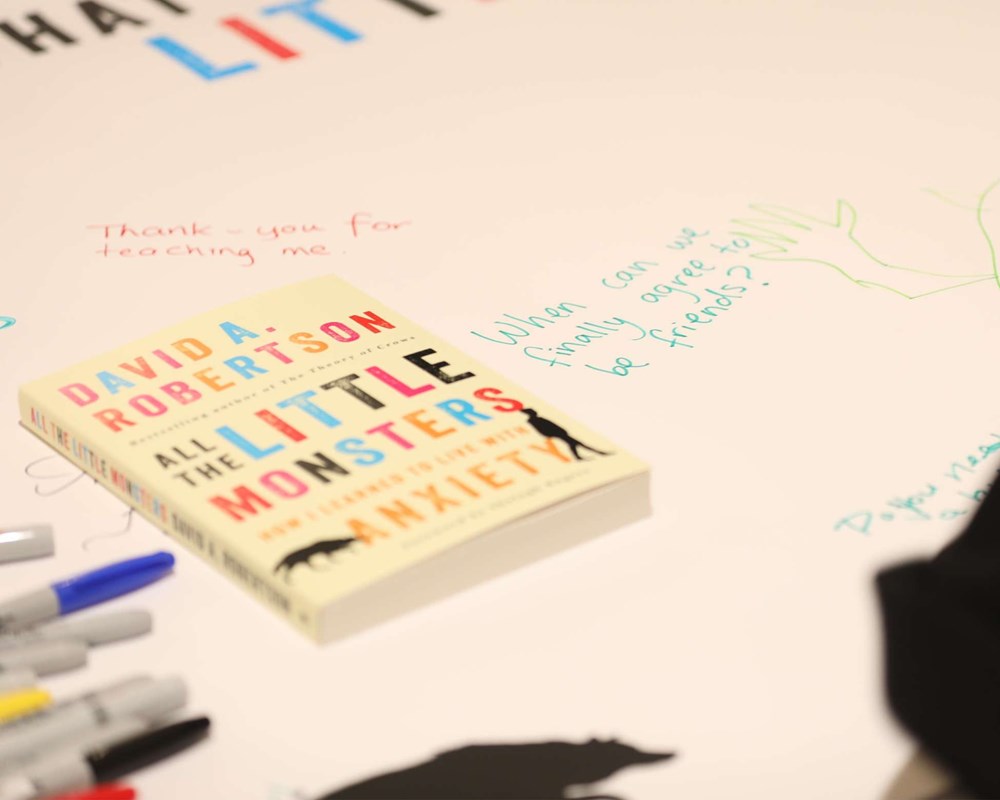 HAT
LITT
Thank-you for
teaching me.
When can we
finally agree to
be friends?
DAVID A.
ROBERTSON
Bestselling author of The Theory of Crows
ALL
THE LITTLE
MONSTERS
HOW I LEARNED TO LIVE WITH
ANXIETY
ALL THE LITTLE MONSTERS DAVID A. ROBERTSON
Do you need
a